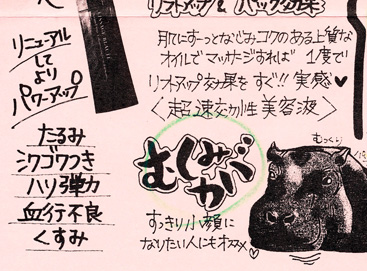 リフトアップ & パック効果
肌にすーっとなじみコクのある上質な
オイルでマッサージすれば 1度で
リフトアップ効果を すぐ!! 実感♥
〈超速効性美容液〉
リニューアル
して
より
パワーアップ
たるみ
シワゴワつき
ハリ弾力
血行不良
くすみ
むっくり
すっきり小顔に
なりたい人にもオススメ♡